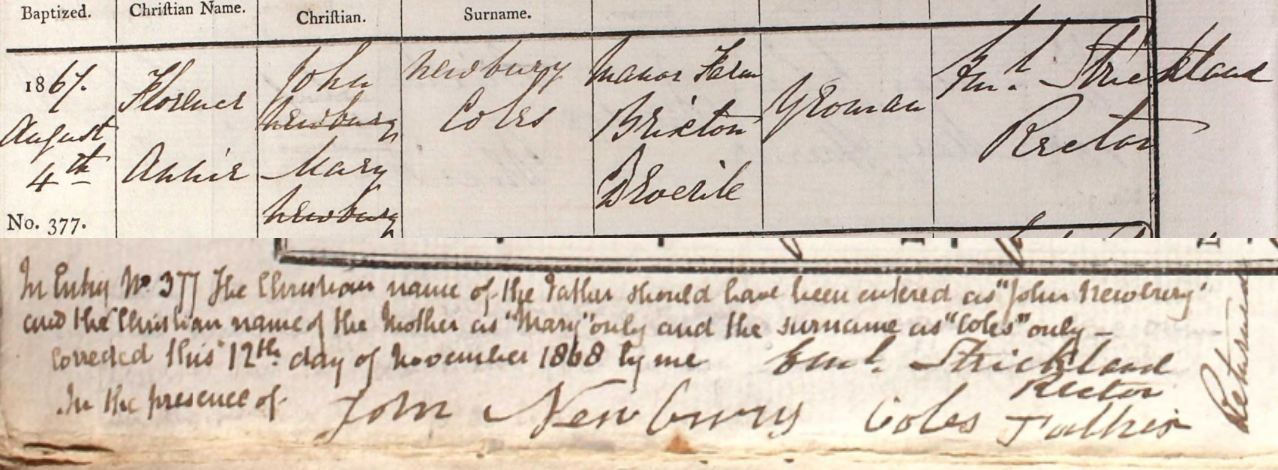 Baptized. Christian Name. Christian. Surname.
1867. August 4th No. 377.
Florence Annie
John Newbury Mary Newbury
Newbury Coles
Manor Farm Brixton Deverile
Yeoman
Eml. Strickland Rector
In Entry No. 377 The Christian name of the Father should have been entered as "John Newbury"
and the Christian name of the Mother as "Mary" only and the surname as "Coles" only
Corrected this 12th day of November 1868 by me Eml. Strickland
Rector
In the presence of John Newbury Coles Father